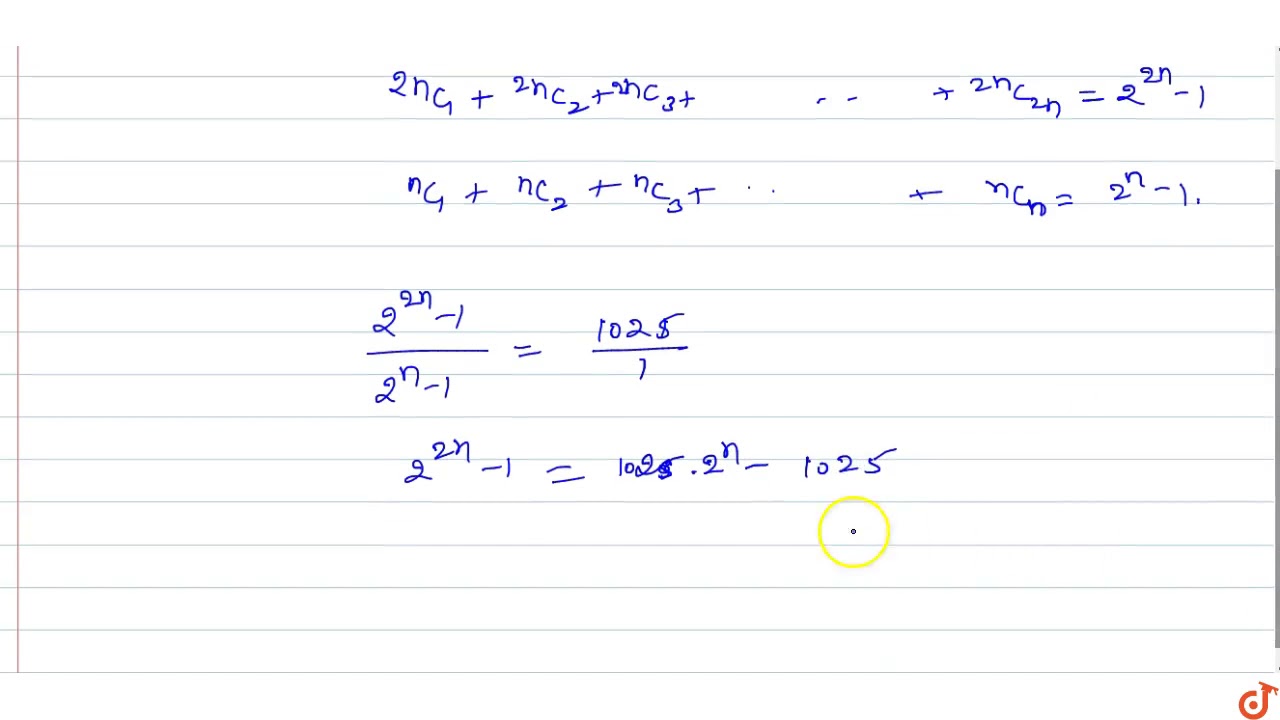 2nC1 + 2nC2 + 2nC3 + .. .. + 2nC2n = 2^2n - 1
nC1 + nC2 + nC3 + .. + nCn = 2^n - 1.
2^2n - 1 / 2^n - 1 = 1025 / 1
2^2n - 1 = 1025 . 2^n - 1025